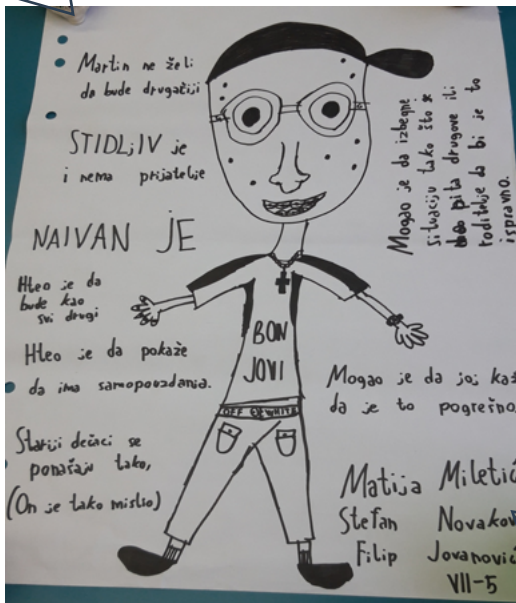 Martin ne želi
da bude drugačiji
STIDLjIV je
i nema prijatelje
NAIVAN JE
Hteo je da
bude kao
svi drugi
Hteo je da pokaže
da ima samopouzdanja.
Stariji dečaci se
ponašaju tako,
(On je tako mislio)
BON
JOVI
OFF WHITE
Mogao je da izbegne
situaciju tako što
pita drugove ili
roditelje da bi je to
ispravno.
Mogao je da joj kaž
da je to pogrešno.
Matija Miletić
Stefan Novakov
Filip Jovanović
VII-5